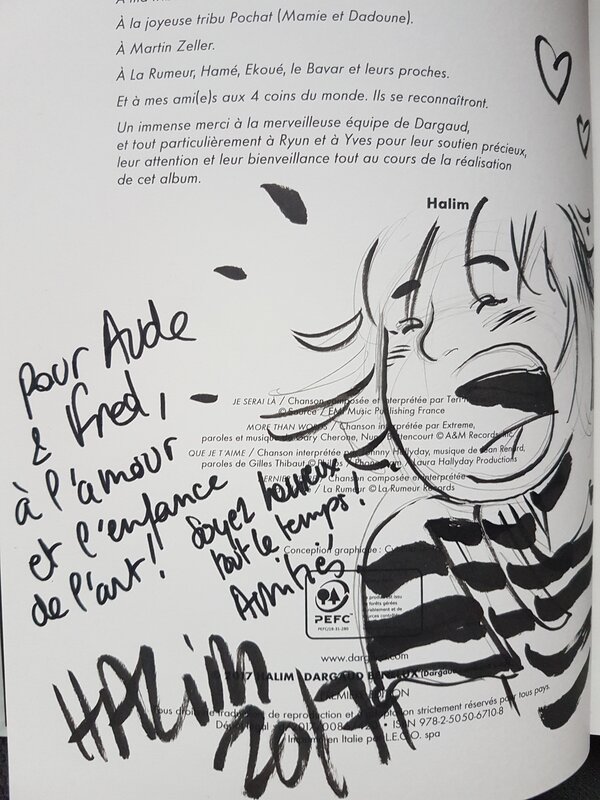 À la joyeuse tribu Pochat (Mamie et Dadoune).
À Martin Zeller.
À La Rumeur, Hamé, Ekoué, le Bavar et leurs proches.
Et à mes ami(e)s aux 4 coins du monde. Ils se reconnaîtront.
Un immense merci à la merveilleuse équipe de Dargaud,
et tout particulièrement à Ryun et à Yves pour leur soutien précieux,
leur attention et leur bienveillance tout au cours de la réalisation
de cet album.
Halim
Pour Aude
& Fred,
à l'amour
et l'enfance
de l'art!
Soyez heureux
tout le temps!
Amitiés
HALIM
JE SERAI LÀ / Chanson composée et interprétée par
© Source / EMI Music Publishing France
MORE THAN WORDS / Chanson interprétée par Extreme,
paroles et musique Gary Cherone, Nuno Bettencourt © A&M Records
QUE JE T'AIME / Chanson interprétée Johnny Hallyday, musique de Jean Renard,
paroles de Gilles Thibaut Laura Hallyday Productions
Chanson composée et interprétée
La Rumeur © La Rumeur Records
Conception graphique :
PEFC
PEFC/18-31-280
© 2017 HALIM / DARGAUD BENELUX (Dargaud
ÉDITION
Tous droits de traduction, de reproduction et d'adaptation strictement réservés pour tous pays.
ISBN 978-2-5050-6710-8
Imprimé en Italie par L.E.G.O. spa